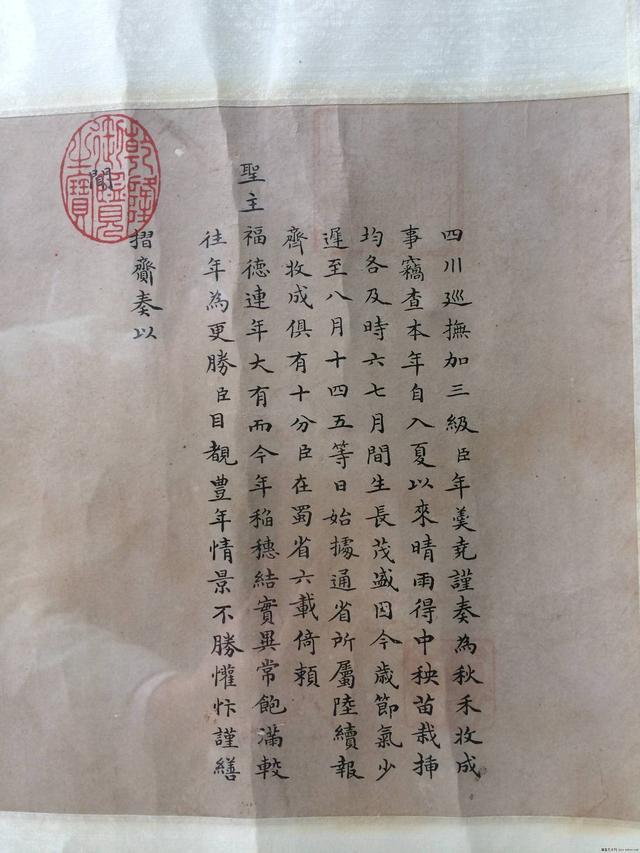 四川巡撫加三級臣年羹堯謹奏為秋禾收成
事竊查本年自入夏以來晴雨得中秧苗栽揷
均各及時六七月間生長茂盛因今歲節氣少
遲至八月十四五等日始據通省所屬陸續報
齊收成俱有十分臣在蜀省六載倚賴
聖主
福德連年大有而今年稲穗結實異常飽滿較
往年為更勝臣目覩豊年情景不勝懽忭謹繕
摺齎奏以
聞
乾隆
御覽
之寶